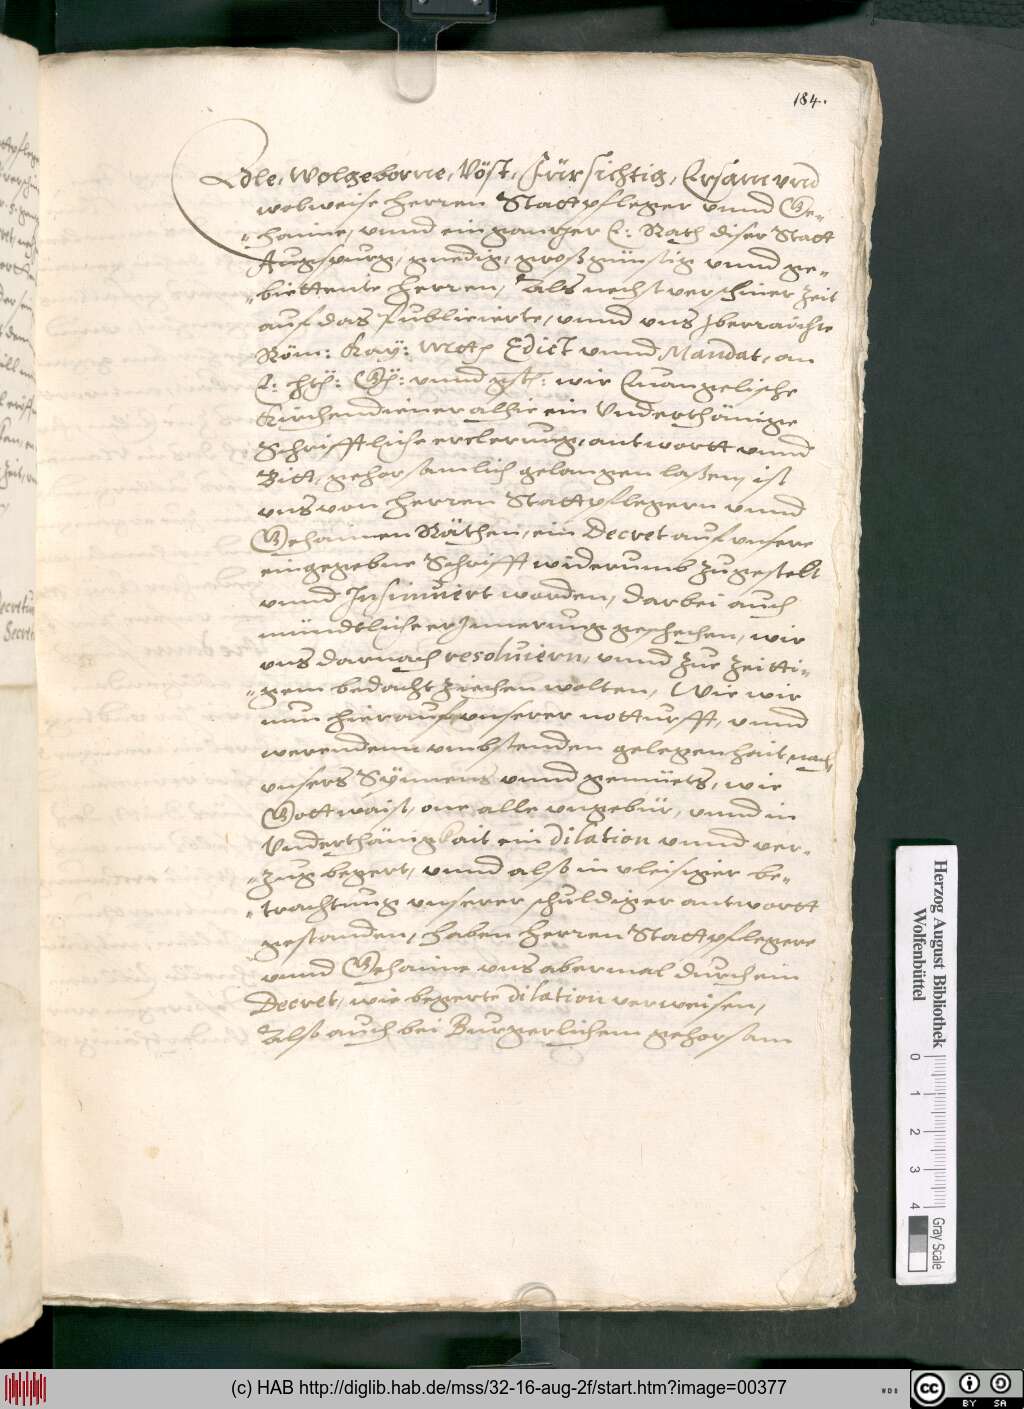 184.
Edle, Wolgeborne, Vöst, Fürsichtig, Ersam vnd
wolweise Herren Stattpfleger vnnd Ge-
-haime, vnnd ein gantzer E: Rath diser Statt
Augspurg, gnedig, großgünstig vnnd ge-
-biettente Herren, Als nechst verschiner Zeit
auf das Publicierte, vnnd vns yberraichte
Röm: Kay: Mtt: Edict vnnd Mandat, an
E: Gn: vnnd wir Euangelische
Kirchendiener alhie ein Vnderthänige
Schrifftliche erclerung, antwortt vnnd
Bitt, gehorsamlich gelangen laßen, ist
vns von Herren Stattpflegern vnnd
Gehaimen Räthen, ein Decret auf vnsere
eingegebne Schrifft widerumb zugestelt
vnnd Insinuiert worden, darbei auch
mündtliche erInnerung geschechen, wir
vns darnach resoluiern, vnnd zue zeitti-
-gem bedacht ziechen wolten, Wie wir
nun hierauf vnserer notturfft, vnnd
werendenn vmbstenden gelegenhait nach,
vnsers vnnd gemüets, wie
Gott waist, one alle vngebür, vnnd in
Vnderthänigkait ein dilation vnnd ver-
-zug begert, vnnd also in vleisiger be-
-trachtung vnserer schuldiger antwortt
gestanden, haben Herren Stattpflegere
vnnd Gehaime vns abermal durch ein
Decret, wie begerte dilation verweisen,
Also auch bei Burgerlichem gehorsam
Decretum
Herzog August Bibliothek
Wolfenbüttel
0 1 2 3 4
Gray Scale
(c) HAB http://diglib.hab.de/mss/32-16-aug-2f/start.htm?image=00377
WDB
cc BY SA